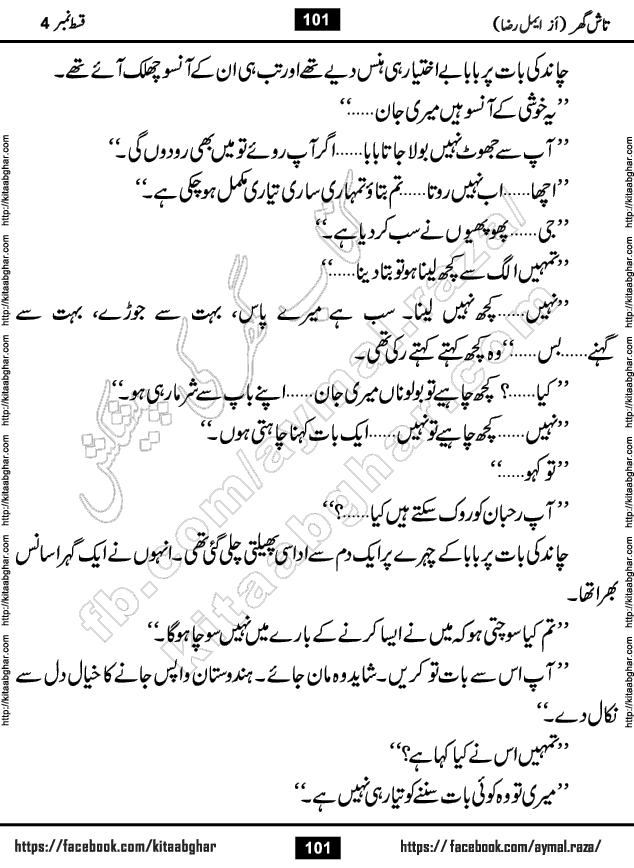 تاش گھر (از ایمل رضا)
101
قسط نمبر 4
چاند کی بات پر بابا بے اختیار ہی ہنس دیے تھے اور تب ہی ان کے آنسو چھلک آئے تھے۔
’’یہ خوشی کے آنسو ہیں میری جان……‘‘
’’آپ سے جھوٹ نہیں بولا جاتا بابا……اگر آپ روئے تو میں بھی رو دوں گی۔‘‘
’’اچھا……اب نہیں روتا……تم بتاؤ تمہاری ساری تیاری مکمل ہو چکی ہے۔‘‘
’’جی……پھوپھیوں نے سب کر دیا ہے۔‘‘
’’تمہیں الگ سے کچھ لینا ہو تو بتا دینا……‘‘
’’نہیں……کچھ نہیں لینا۔ سب ہے میرے پاس، بہت سے جوڑے، بہت سے
گہنے……بس……‘‘وہ کچھ کہتے کہتے رکی تھی۔
’’کیا……؟ کچھ چاہیے تو بولو ناں میری جان……اپنے باپ سے شرما رہی ہو۔‘‘
’’نہیں……کچھ چاہیے تو نہیں……ایک بات کہنا چاہتی ہوں۔‘‘
’’تو کہو……‘‘
’’آپ رحبان کو روک سکتے ہیں کیا……؟‘‘
چاند کی بات پر بابا کے چہرے پر ایک دم سے اداسی پھیلتی چلی گئی تھی۔ انہوں نے ایک گہرا سانس
بھرا تھا۔
’’تم کیا سوچتی ہو کہ میں نے ایسا کرنے کے بارے میں نہیں سوچا ہوگا۔‘‘
’’آپ اس سے بات تو کریں۔ شاید وہ مان جائے۔ ہندوستان واپس جانے کا خیال دل سے
نکال دے۔‘‘
’’تمہیں اس نے کیا کہا ہے؟‘‘
’’میری تو وہ کوئی بات سننے کو تیار ہی نہیں ہے۔‘‘
http://kitaabghar.com http://kitaabghar.com http://kitaabghar.com http://kitaabghar.com http://kitaabghar.com http://kitaabghar.com
http://kitaabghar.com http://kitaabghar.com http://kitaabghar.com http://kitaabghar.com http://kitaabghar.com http://kitaabghar.com
کتاب گھر کی پیشکش
fb.com/aymal.raza/
kitaabghar.com
https://facebook.com/kitaabghar
101
https://facebook.com/aymal.raza/